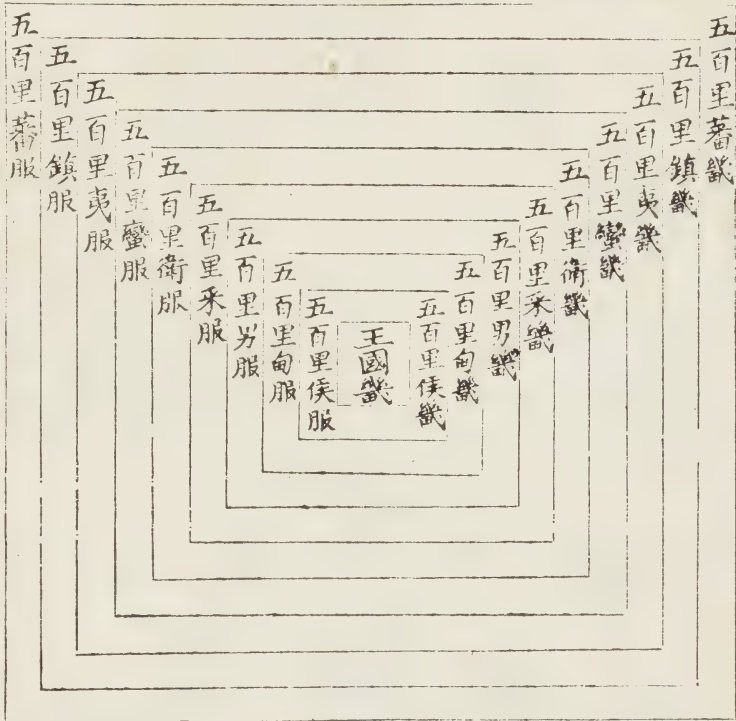 五百里蕃畿
五百里鎮畿
五百里夷畿
五百里蠻畿
五百里衛畿
五百里采畿
五百里男畿
五百里甸畿
五百里侯畿
王國畿
五百里侯服
五百里甸服
五百里男服
五百里采服
五百里衛服
五百里蠻服
五百里夷服
五百里鎮服
五百里蕃服